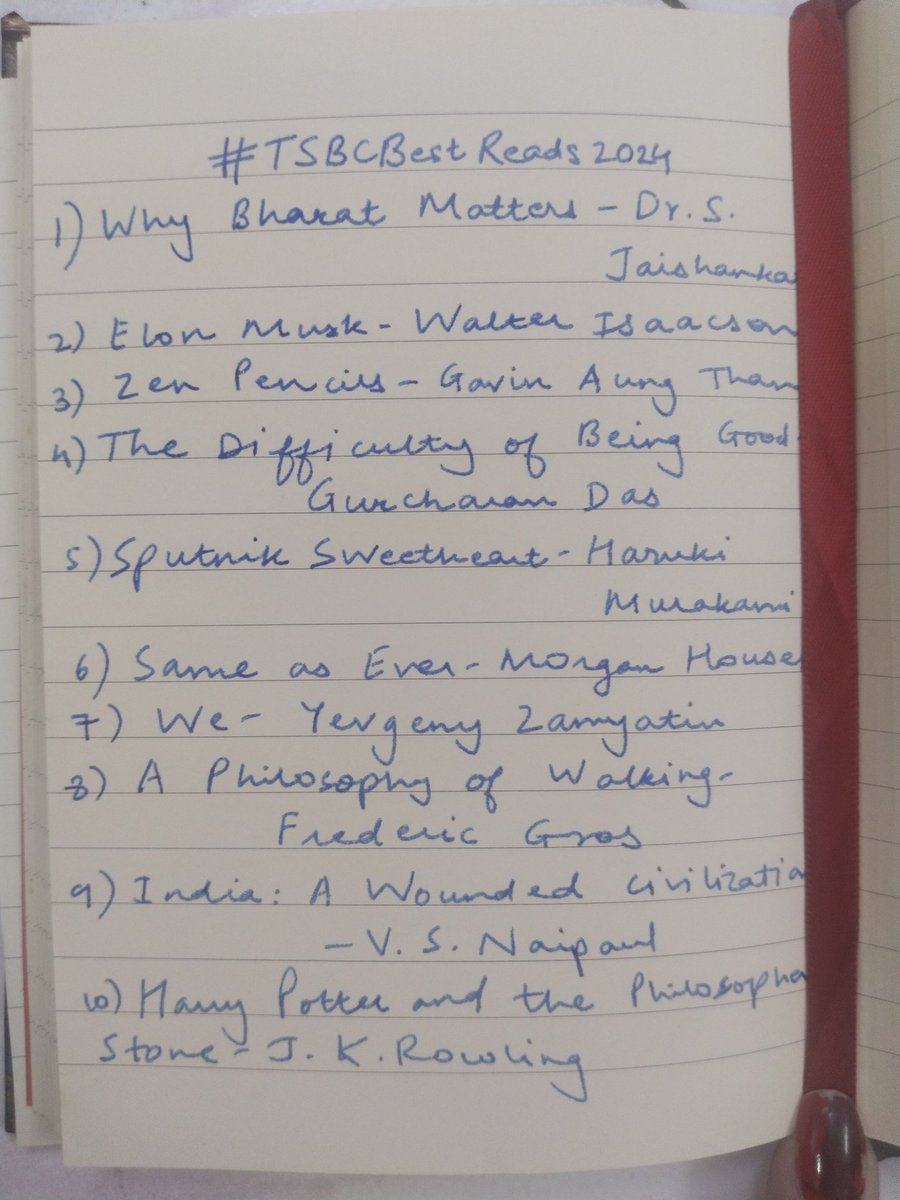 #TSBCBestReads2024
1) Why Bharat Matters - Dr. S.
Jaishanka
2) Elon Musk - Walter Isaacson
3) Zen Pencils - Gavin Aung Than
4) The Difficulty of Being Good-
Gurcharan Das
5) Sputnik Sweetheart - Haruki
Murakami
6) Same as Ever - Morgan House
7) We - Yevgeny Zamyatin
8) A Philosophy of Walking-
Frederic Gros
9) India: A Wounded Civilizatio
- V. S. Naipaul
10) Harry Potter and the Philosophe
Stone - J. K. Rowling